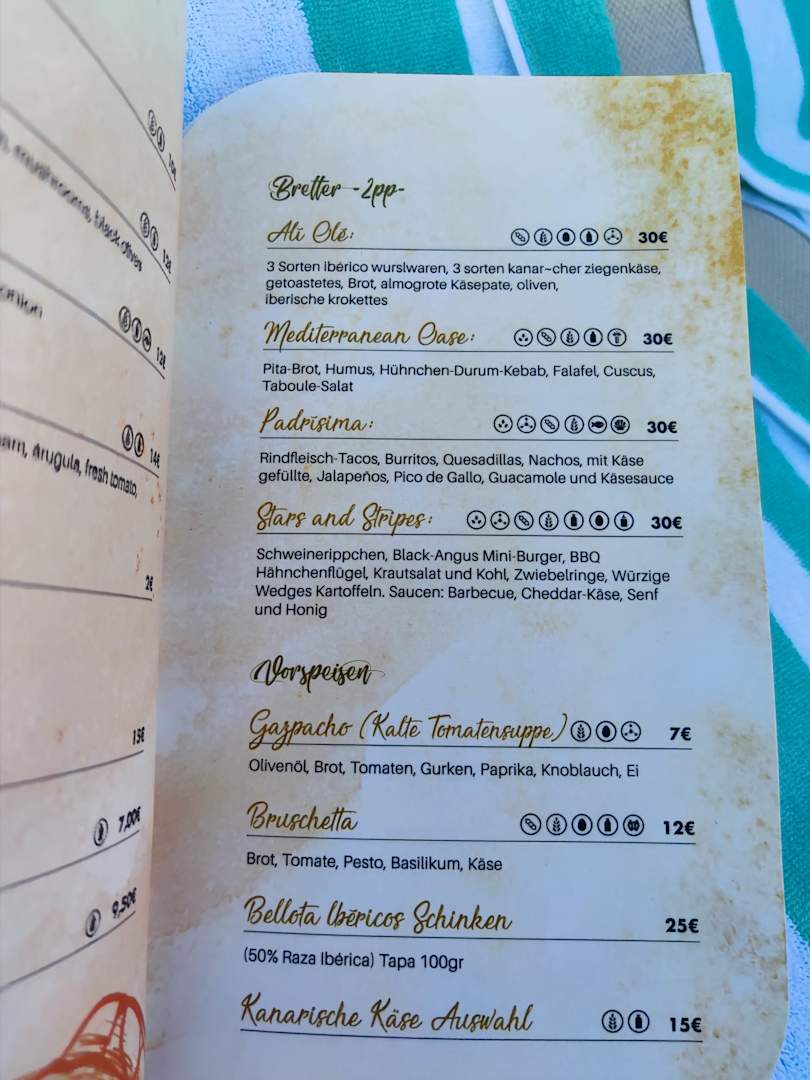 mushrooms, black olives
12€
14€
arugula, fresh tomato,
2€
15€
7,00€
9,50€
Bretter -2pp-
Ali Olé: 30€
3 Sorten ibérico wurslwaren, 3 sorten kanar~cher ziegenkäse,
getoastetes, Brot, almogrote Käsepate, oliven,
iberische krokettes
Mediterranean Oase: 30€
Pita-Brot, Humus, Hühnchen-Durum-Kebab, Falafel, Cuscus,
Taboule-Salat
Padrísima: 30€
Rindfleisch-Tacos, Burritos, Quesadillas, Nachos, mit Käse
gefüllte, Jalapeños, Pico de Gallo, Guacamole und Käsesauce
Stars and Stripes: 30€
Schweinerippchen, Black-Angus Mini-Burger, BBQ
Hähnchenflügel, Krautsalat und Kohl, Zwiebelringe, Würzige
Wedges Kartoffeln. Saucen: Barbecue, Cheddar-Käse, Senf
und Honig
Vorspeisen
Gazpacho (Kalte Tomatensuppe) 7€
Olivenöl, Brot, Tomaten, Gurken, Paprika, Knoblauch, Ei
Bruschetta 12€
Brot, Tomate, Pesto, Basilikum, Käse
Bellota Ibéricos Schinken 25€
(50% Raza Ibérica) Tapa 100gr
Kanarische Käse Auswahl 15€